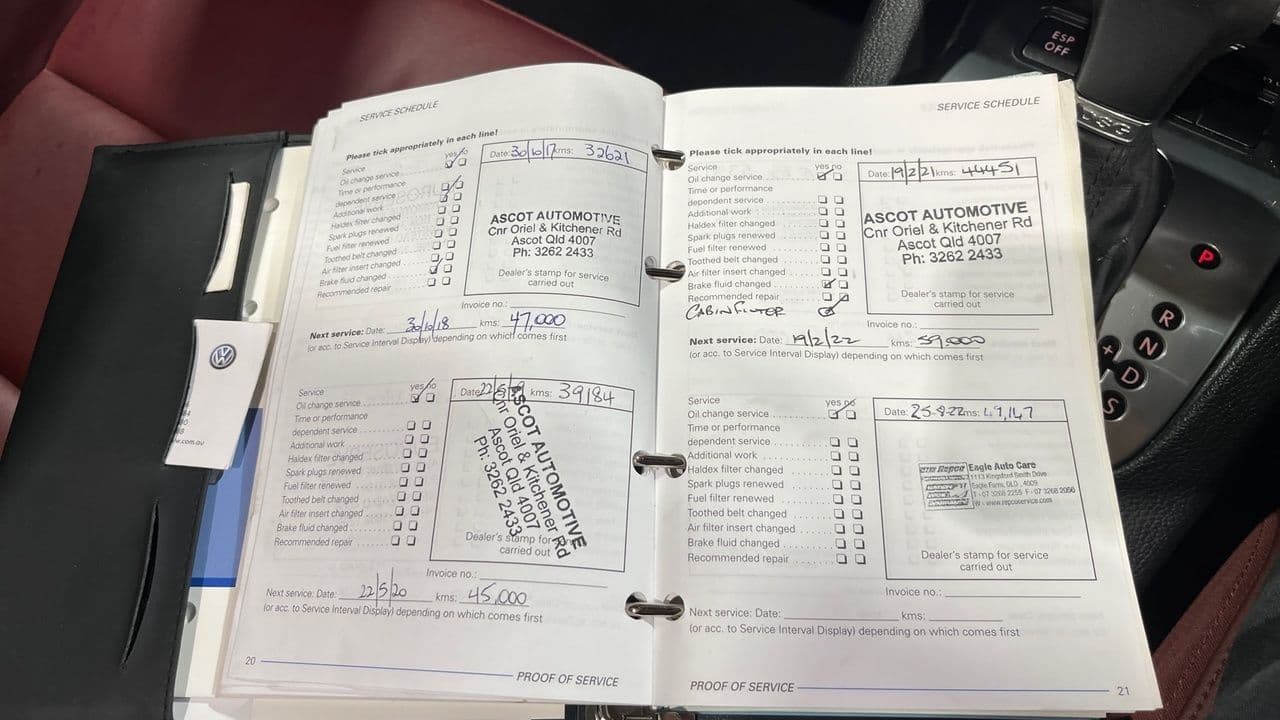 ESP
OFF
DSG
P
R
N
+ D
S
SERVICE SCHEDULE
Please tick appropriately in each line!
yes no
Service
Oil change service
Time or performance
dependent service
Additional work
Haldex filter changed
Spark plugs renewed
Fuel filter renewed
Toothed belt changed
Air filter insert changed
Brake fluid changed
Recommended repair
Date: 30/10/17 kms: 32621
ASCOT AUTOMOTIVE
Cnr Oriel & Kitchener Rd
Ascot Qld 4007
Ph: 3262 2433
Dealer's stamp for service
carried out
Invoice no.:
Next service: Date: 30/10/18 kms: 47,000
(or acc. to Service Interval Display) depending on which comes first
Service
yes no
Oil change service
Time or performance
dependent service
Additional work
Haldex filter changed
Spark plugs renewed
Fuel filter renewed
Toothed belt changed
Air filter insert changed
Brake fluid changed
Recommended repair
Date: 22/5/ kms: 39184
ASCOT AUTOMOTIVE
Cnr Oriel & Kitchener Rd
Ascot Qld 4007
Ph: 3262 2433
Dealer's stamp for
carried out
Invoice no.:
Next service: Date: 22/5/20 kms: 45,000
(or acc. to Service Interval Display) depending on which comes first
20
PROOF OF SERVICE
SERVICE SCHEDULE
Please tick appropriately in each line!
Service
yes no
Oil change service
Time or performance
dependent service
Additional work
Haldex filter changed
Spark plugs renewed
Fuel filter renewed
Toothed belt changed
Air filter insert changed
Brake fluid changed
Recommended repair
CABIN FILTER
Date: 19/2/21 kms: 44451
ASCOT AUTOMOTIVE
Cnr Oriel & Kitchener Rd
Ascot Qld 4007
Ph: 3262 2433
Dealer's stamp for service
carried out
Invoice no.:
Next service: Date: 19/2/22 kms: 59,000
(or acc. to Service Interval Display) depending on which comes first
Service
yes no
Oil change service
Time or performance
dependent service
Additional work
Haldex filter changed
Spark plugs renewed
Fuel filter renewed
Toothed belt changed
Air filter insert changed
Brake fluid changed
Recommended repair
Date: 25-8-22 kms:
Repco Eagle Auto Care
1113 Kingsford Smith Drive
Eagle Farm, QLD , 4009
T - 07 3268 2255 F - 07 3268 2056
W - www.repcoservice.com
Dealer's stamp for service
carried out
Invoice no.:
Next service: Date: kms:
(or acc. to Service Interval Display) depending on which comes first
PROOF OF SERVICE
21